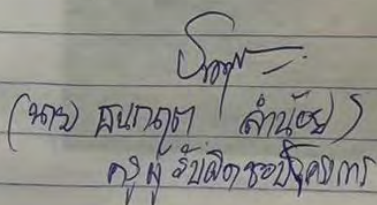 (นาย ธนกฤต ลำน้อย)
ครูผู้รับผิดชอบโครงการ